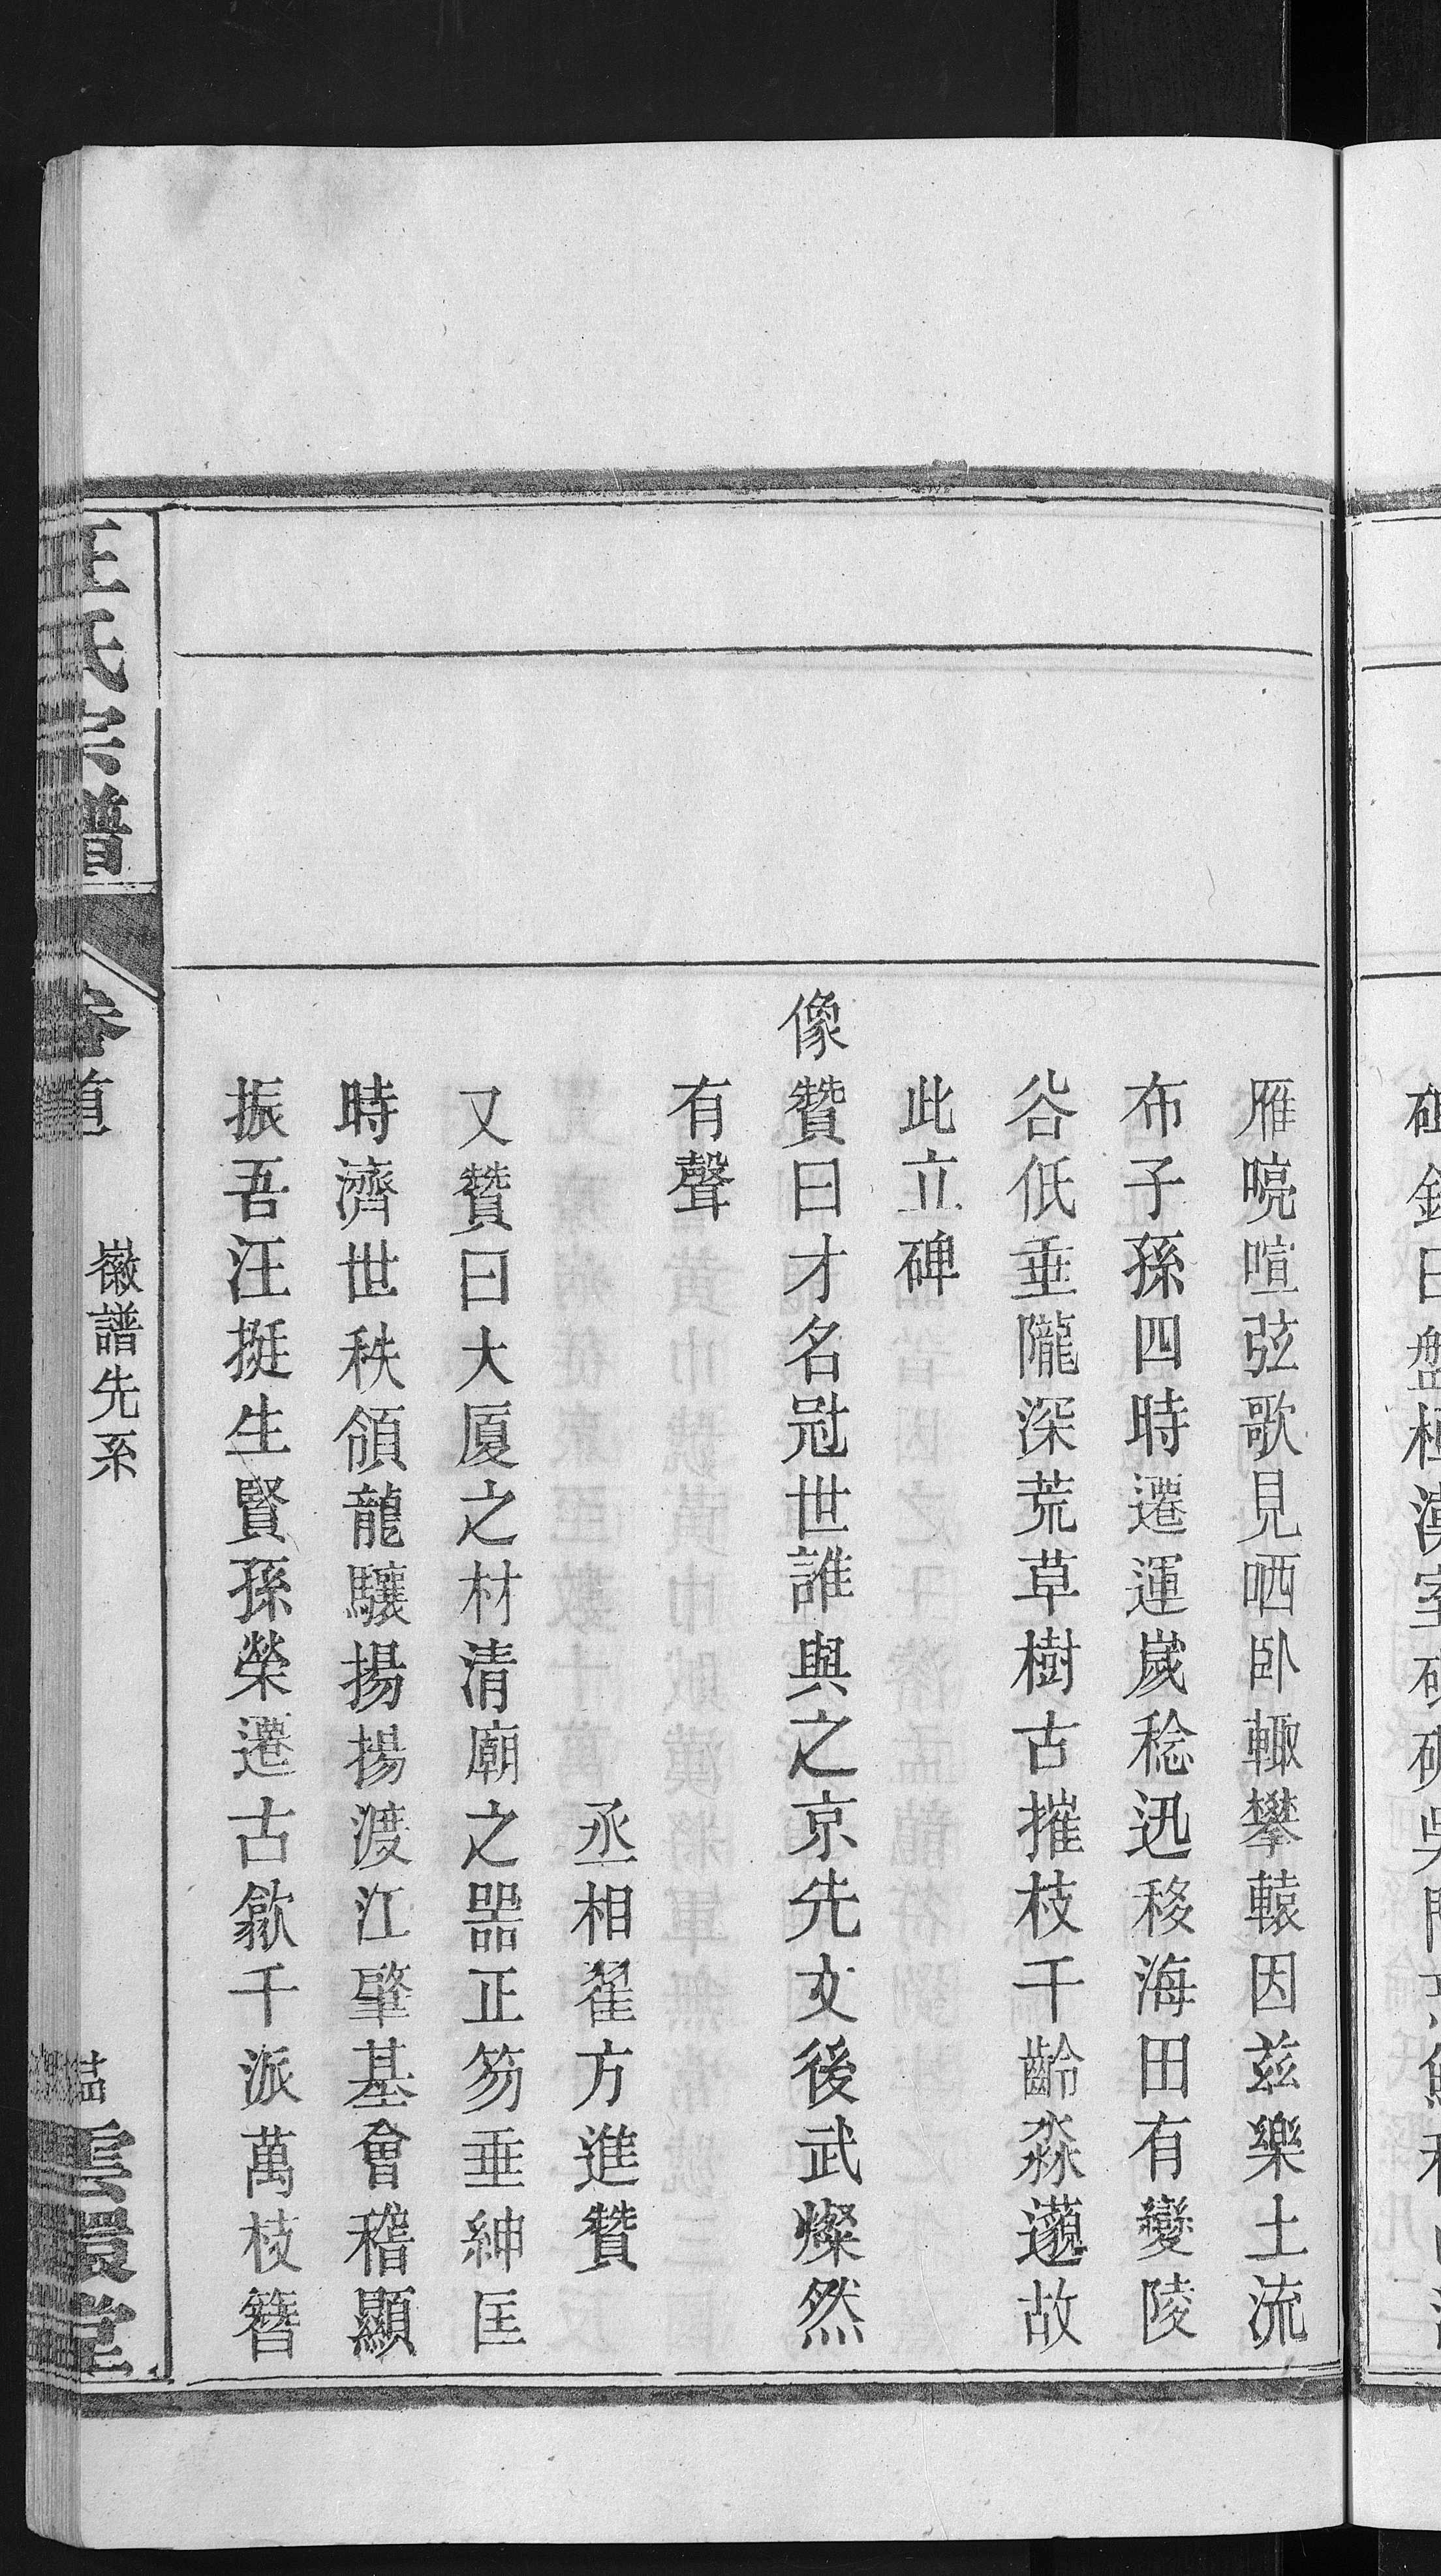 雁嘵喧弦歌見哂卧轍攀轅因茲樂土流
布子孫四時遷運歲稔迅移海田有變陵
谷低垂隴深荒草樹古摧枝千齡淼邈故
此立碑
像贊曰才名冠世誰與之京先文後武燦然
有聲
丞相翟方進贊
又贊曰大厦之材清廟之器正笏垂紳匡
時濟世秩領龍驤揚揚渡江肇基會稽顯
振吾汪挺生賢孫榮遷古歙千派萬枝簪
汪氏宗譜
卷首
徽譜先系
雲環堂